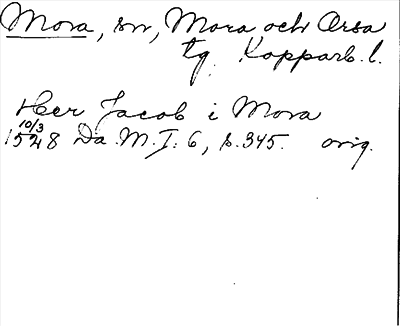 Mora, sn, Mora och Orsa
tg. Kopparb. l.
Her Jacob i Mora
10/3
1528 Da. M. I: 6, s. 345. orig.